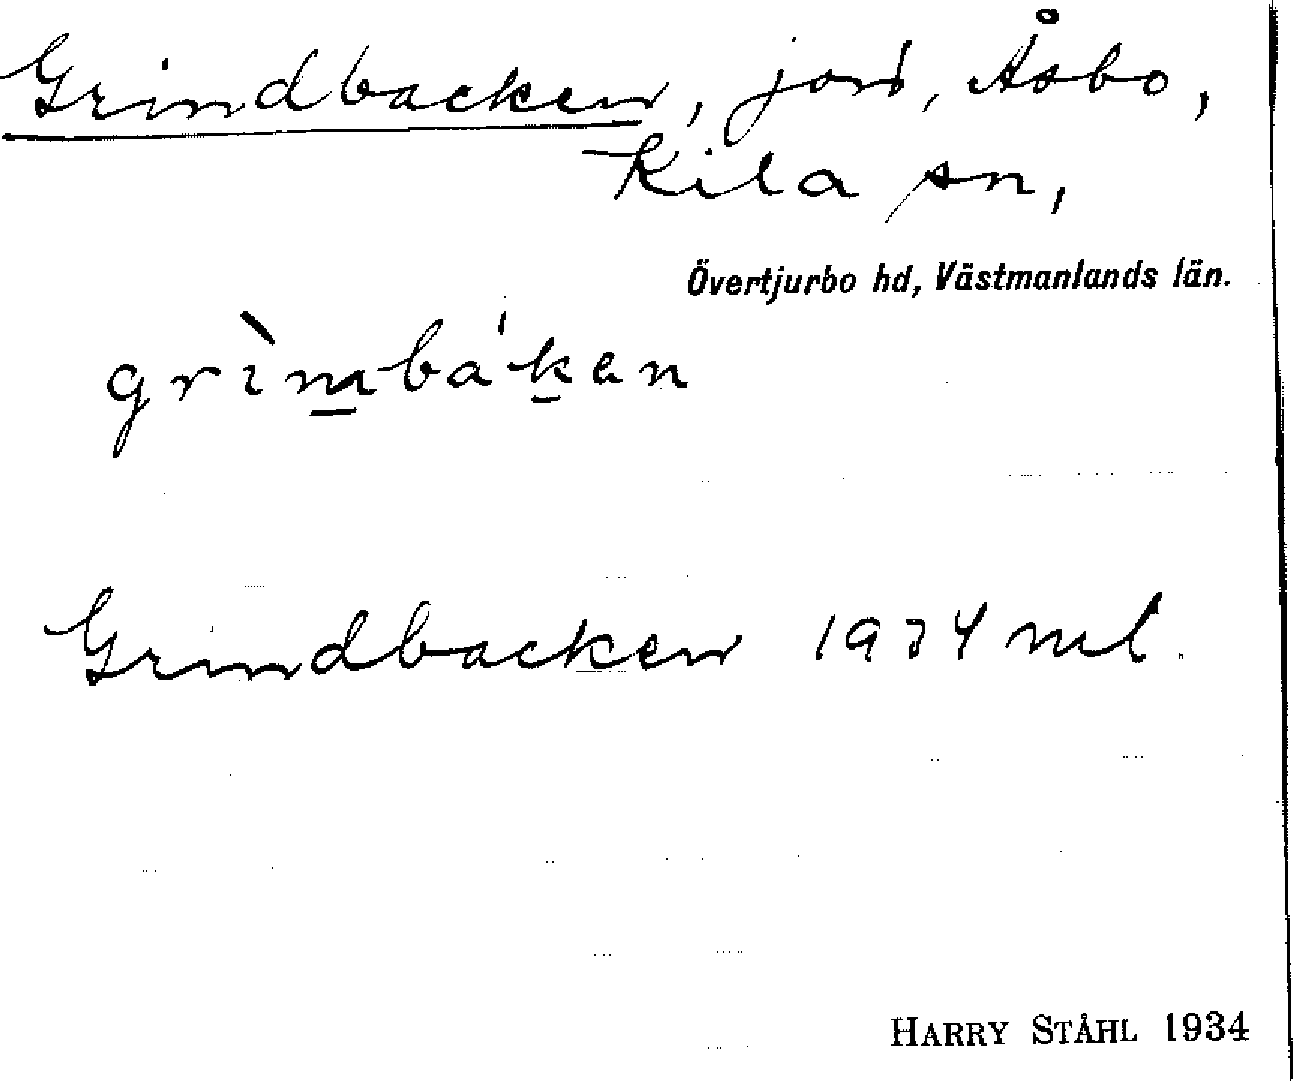 Grindbacken, jord, Åsbo,
Kila sn,
Övertjurbo hd, Västmanlands län.
grìm̲bák̲en
Grindbacken 1934 ml.
HARRY STÅHL 1934